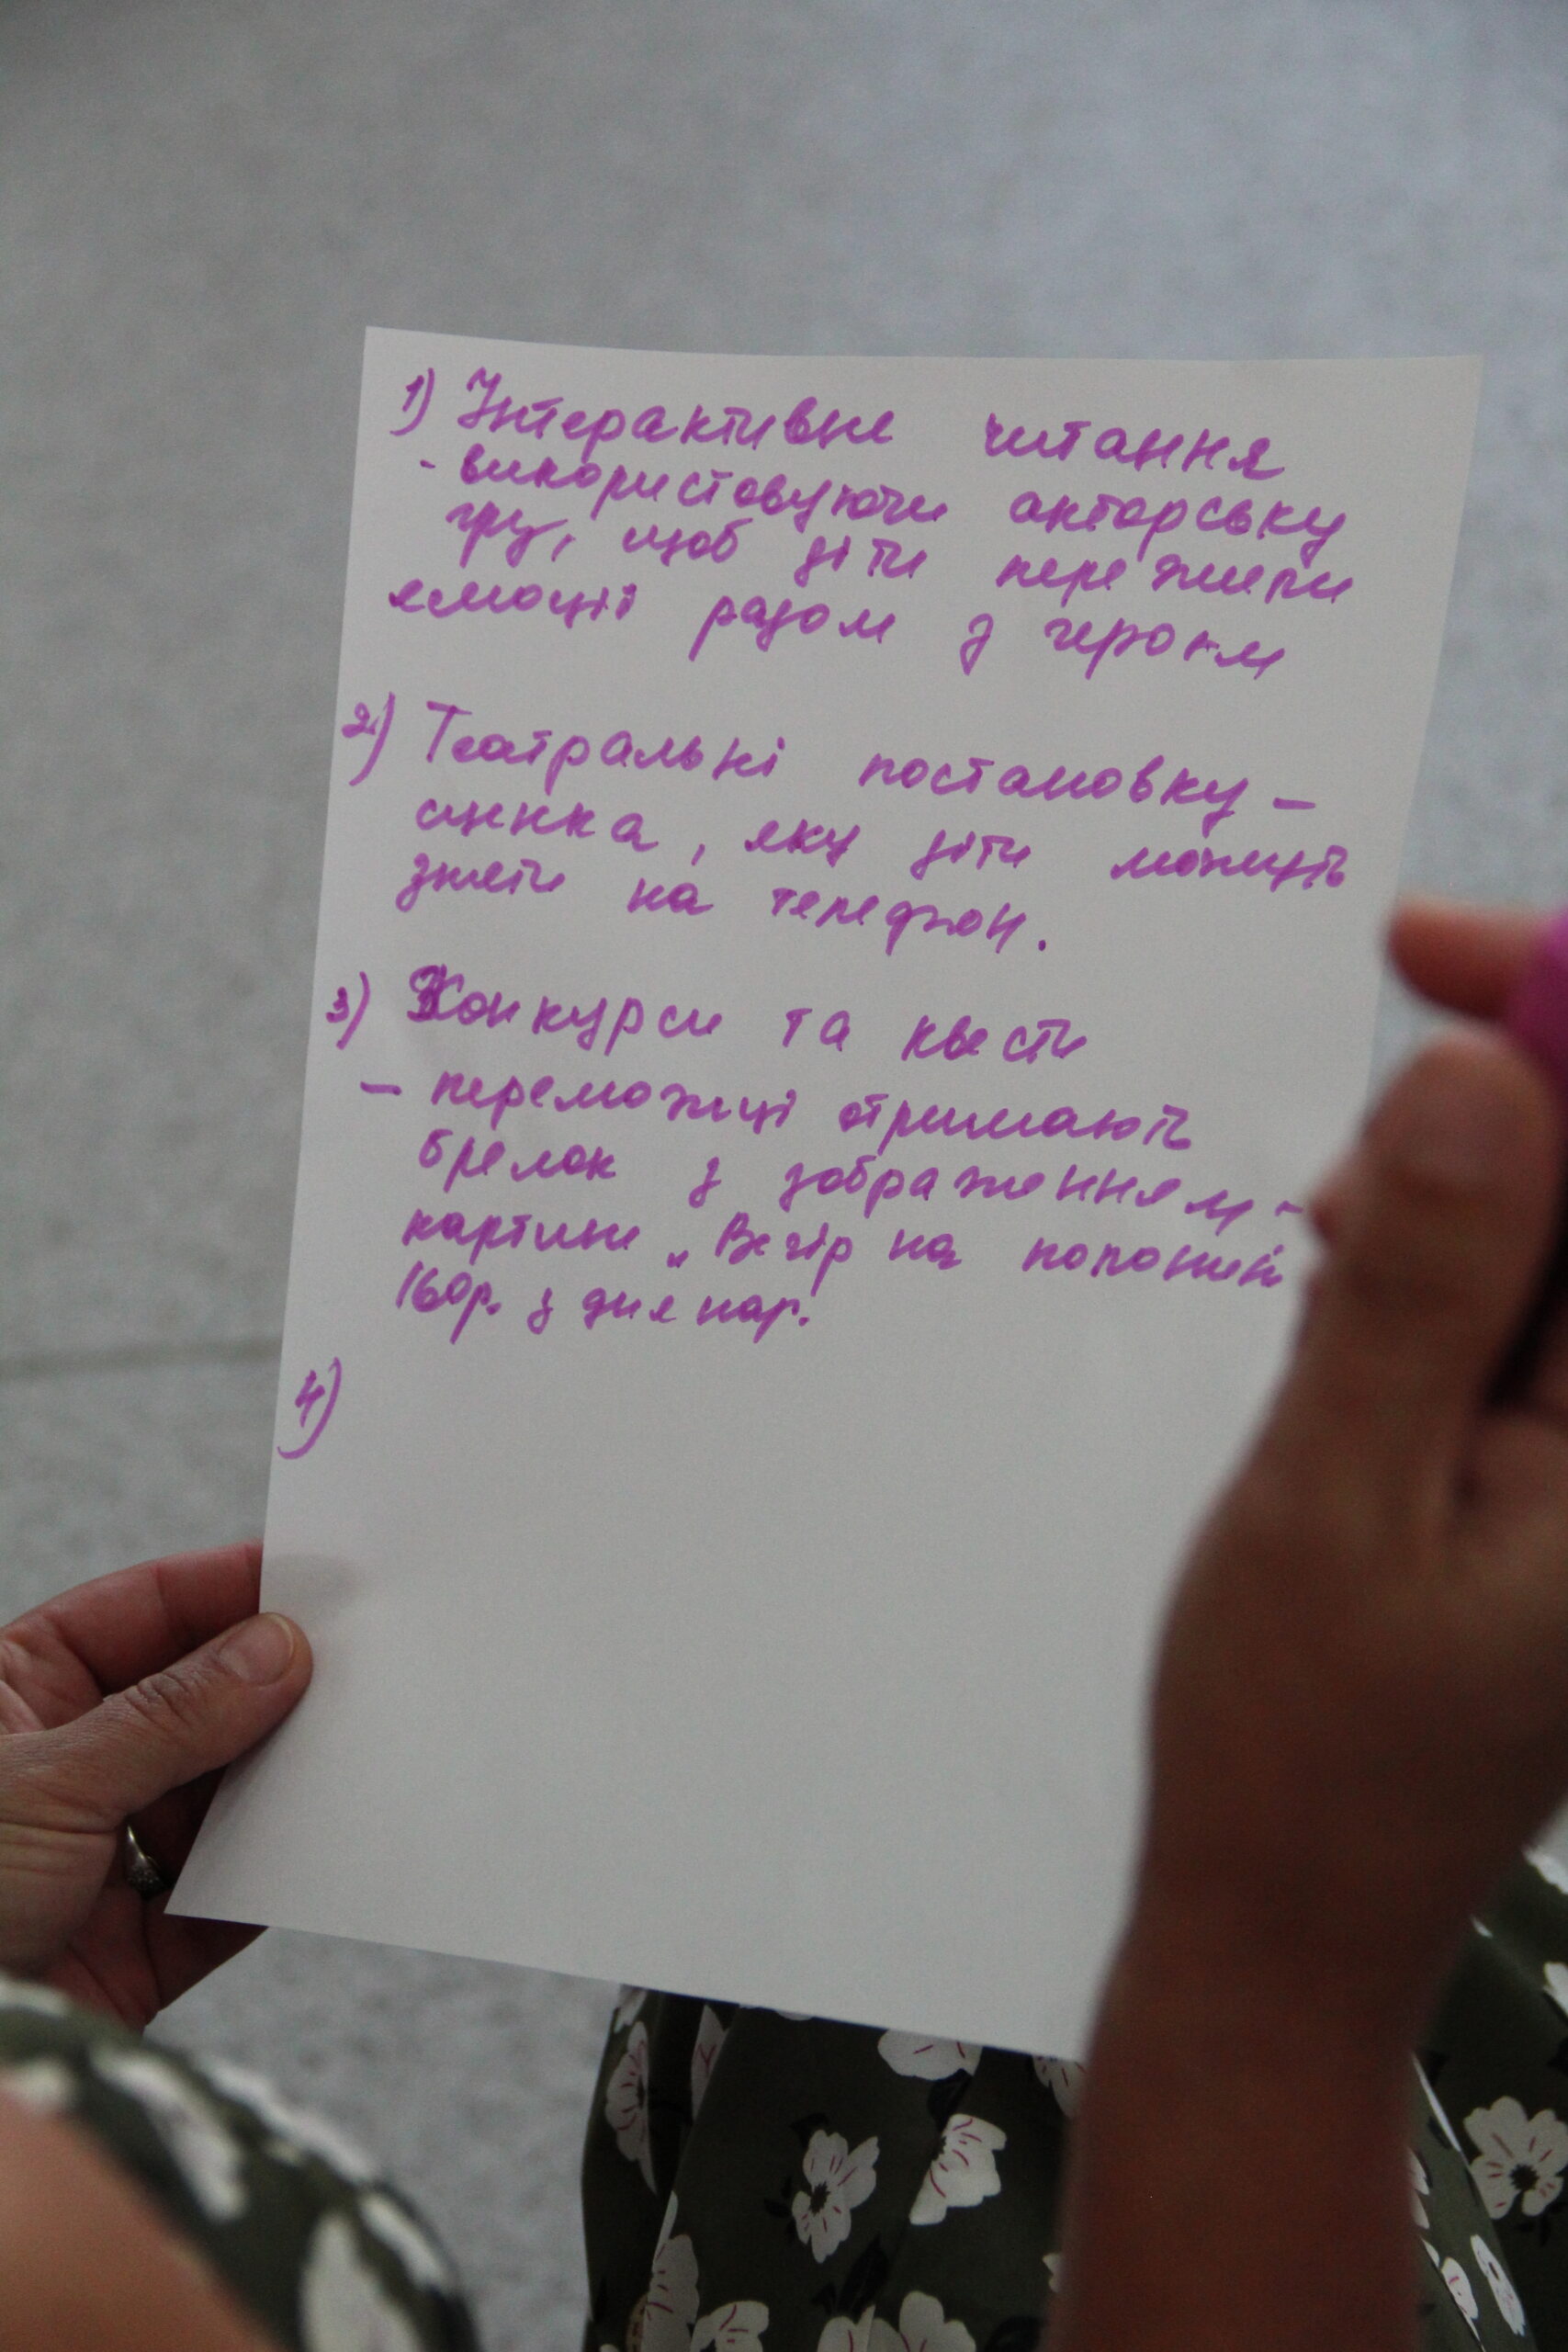 1) Інтерактивне читання
- використовуючи акторську
гру, щоб діти пережили
емоції разом з героєм
2) Театральні постановку –
сценка, яку діти можуть
зняти на телефон.
3) Конкурси та квести
– переможці отримають
брелок з зображенням -
картини „Вечір на полонині
160р. з дня нар.
4)